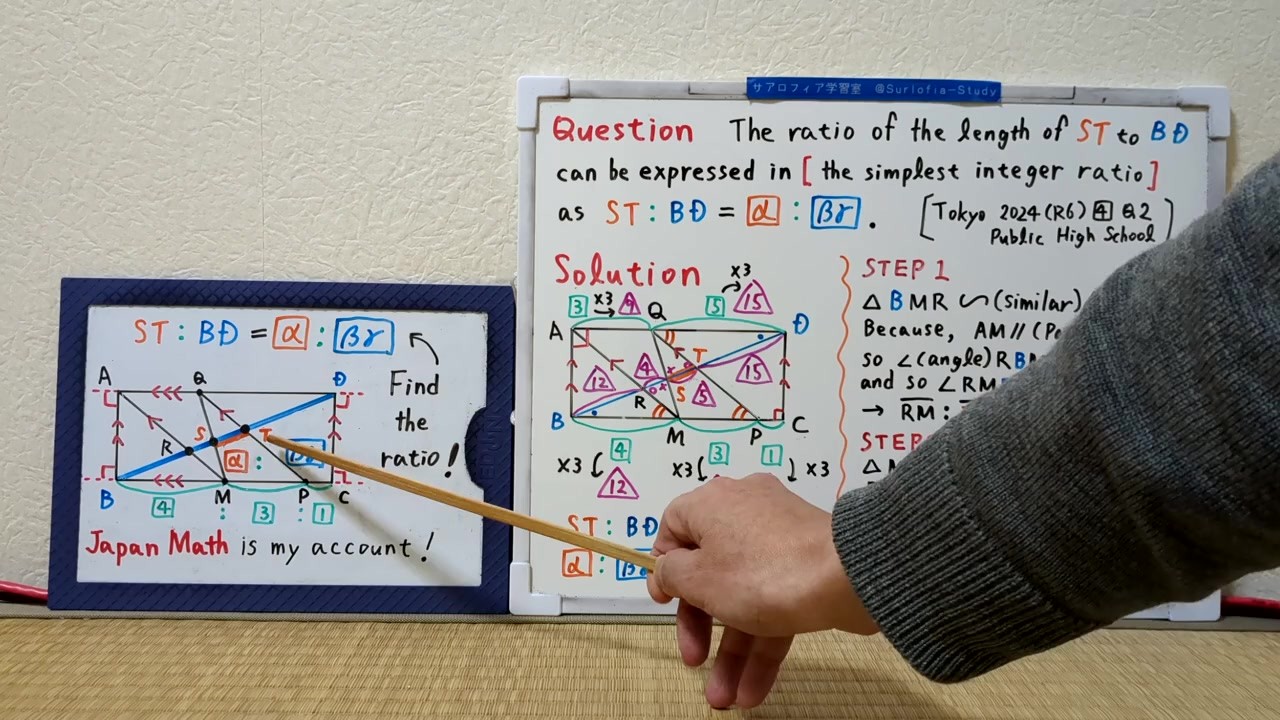 サアロフィア学習室 @Surlofia-Study
Question The ratio of the length of ST to BD
can be expressed in [ the simplest integer ratio ]
as ST : BD = α : βγ .
[Tokyo 2024 (R6) 4 Q2
Public High School]
Solution
×3
3 ×3 9 Q 5 15
A D
12 4 T 15
R S 5
B M P C
4 3 1
×3 ×3 ×3
12
ST : BD
α :
STEP 1
△ BMR ∽ (Similar)
Because, AM //
so ∠(angle) R
and so ∠
→ RM :
STEP
△
ST : BD = α : βγ
A Q D
Find
the
ratio!
R S T
α :
B M P C
4 : 3 : 1
Japan Math is my account!